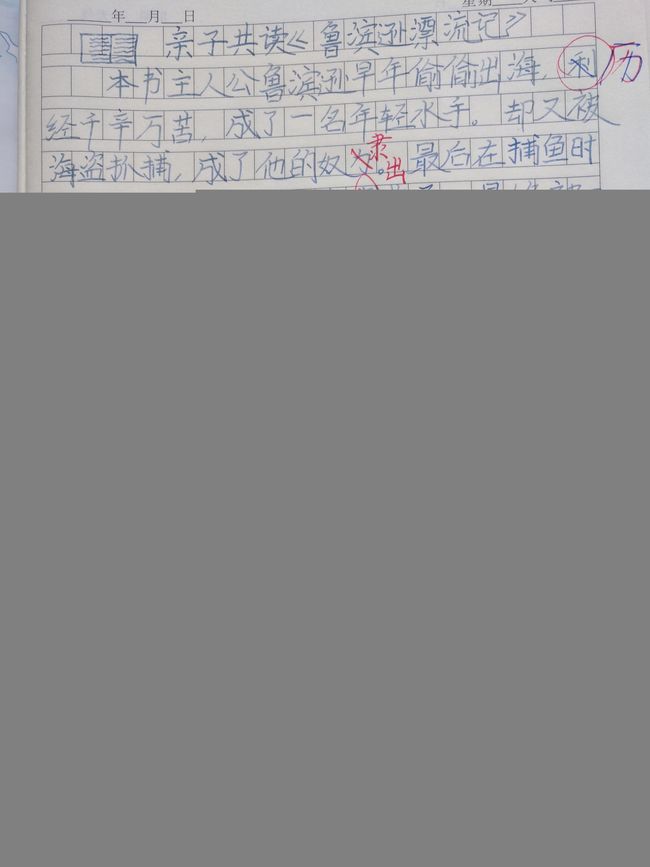 年 月 日
亲子共读《鲁滨逊漂流记》
本书主人公鲁滨逊早年偷偷出海,利历
经千辛万苦,成了一名年轻水手。却又被
海盗扒捕,成了他的奴隶。出最后在捕鱼时